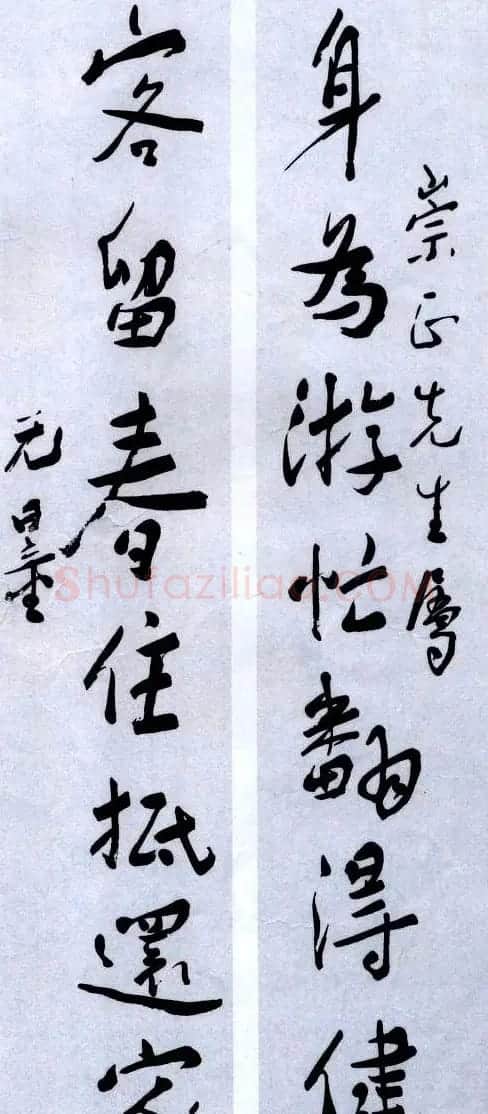 崇正先生屬
身為游忙翻得健
客留春住抵還家
无量
Shufaziliao.COM